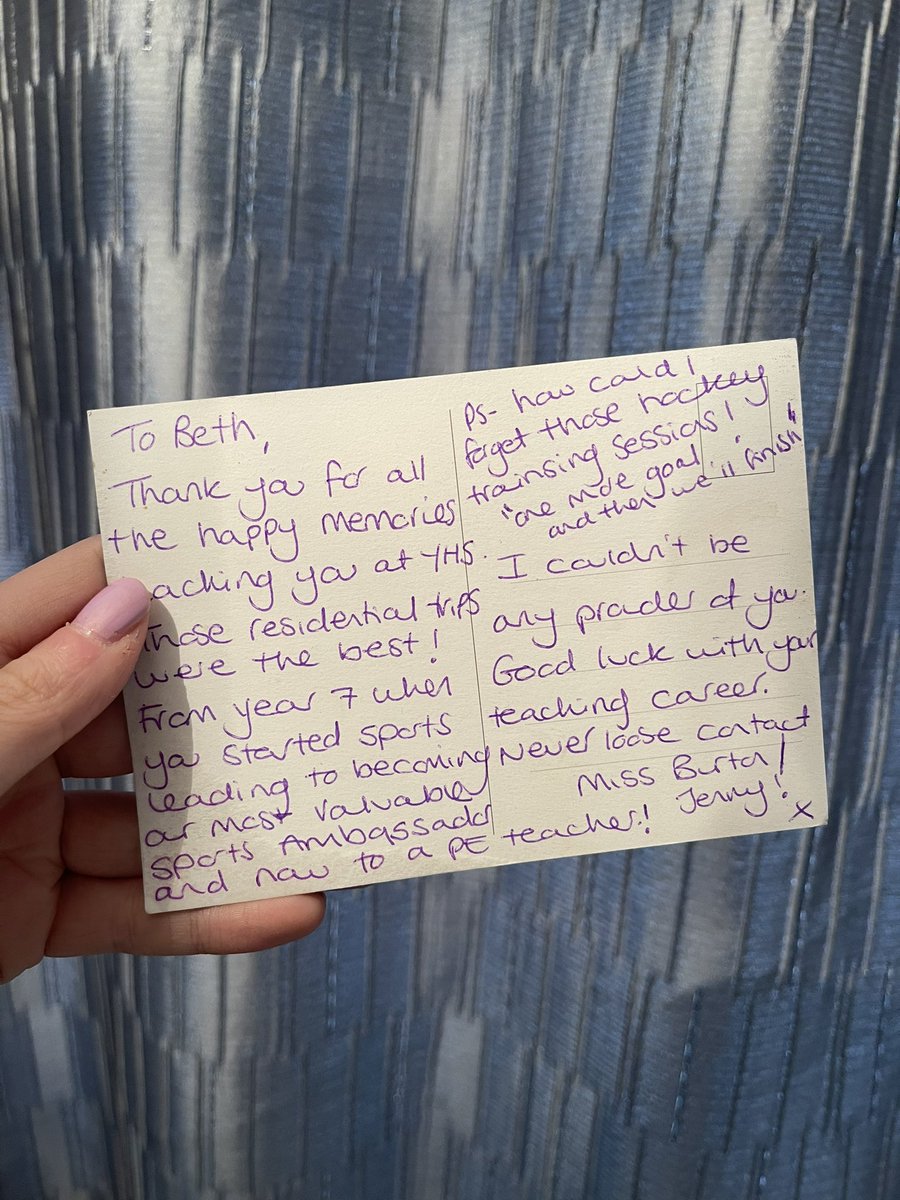 To Beth,
Thank you for all
the happy memories
eaching you at YHS.
Those residential trips
were the best!
From year 7 when
you started sports
leading to becoming
our most valuable
sports Ambassador
and now to a PE teacher!
PS- how could I
forget those hockey
training sessions!
"one more goal
and then we'll finish"
I couldn't be
any prouder of you.
Good luck with your
teaching career.
Never loose contact
Miss Burton!
Jenny!
x